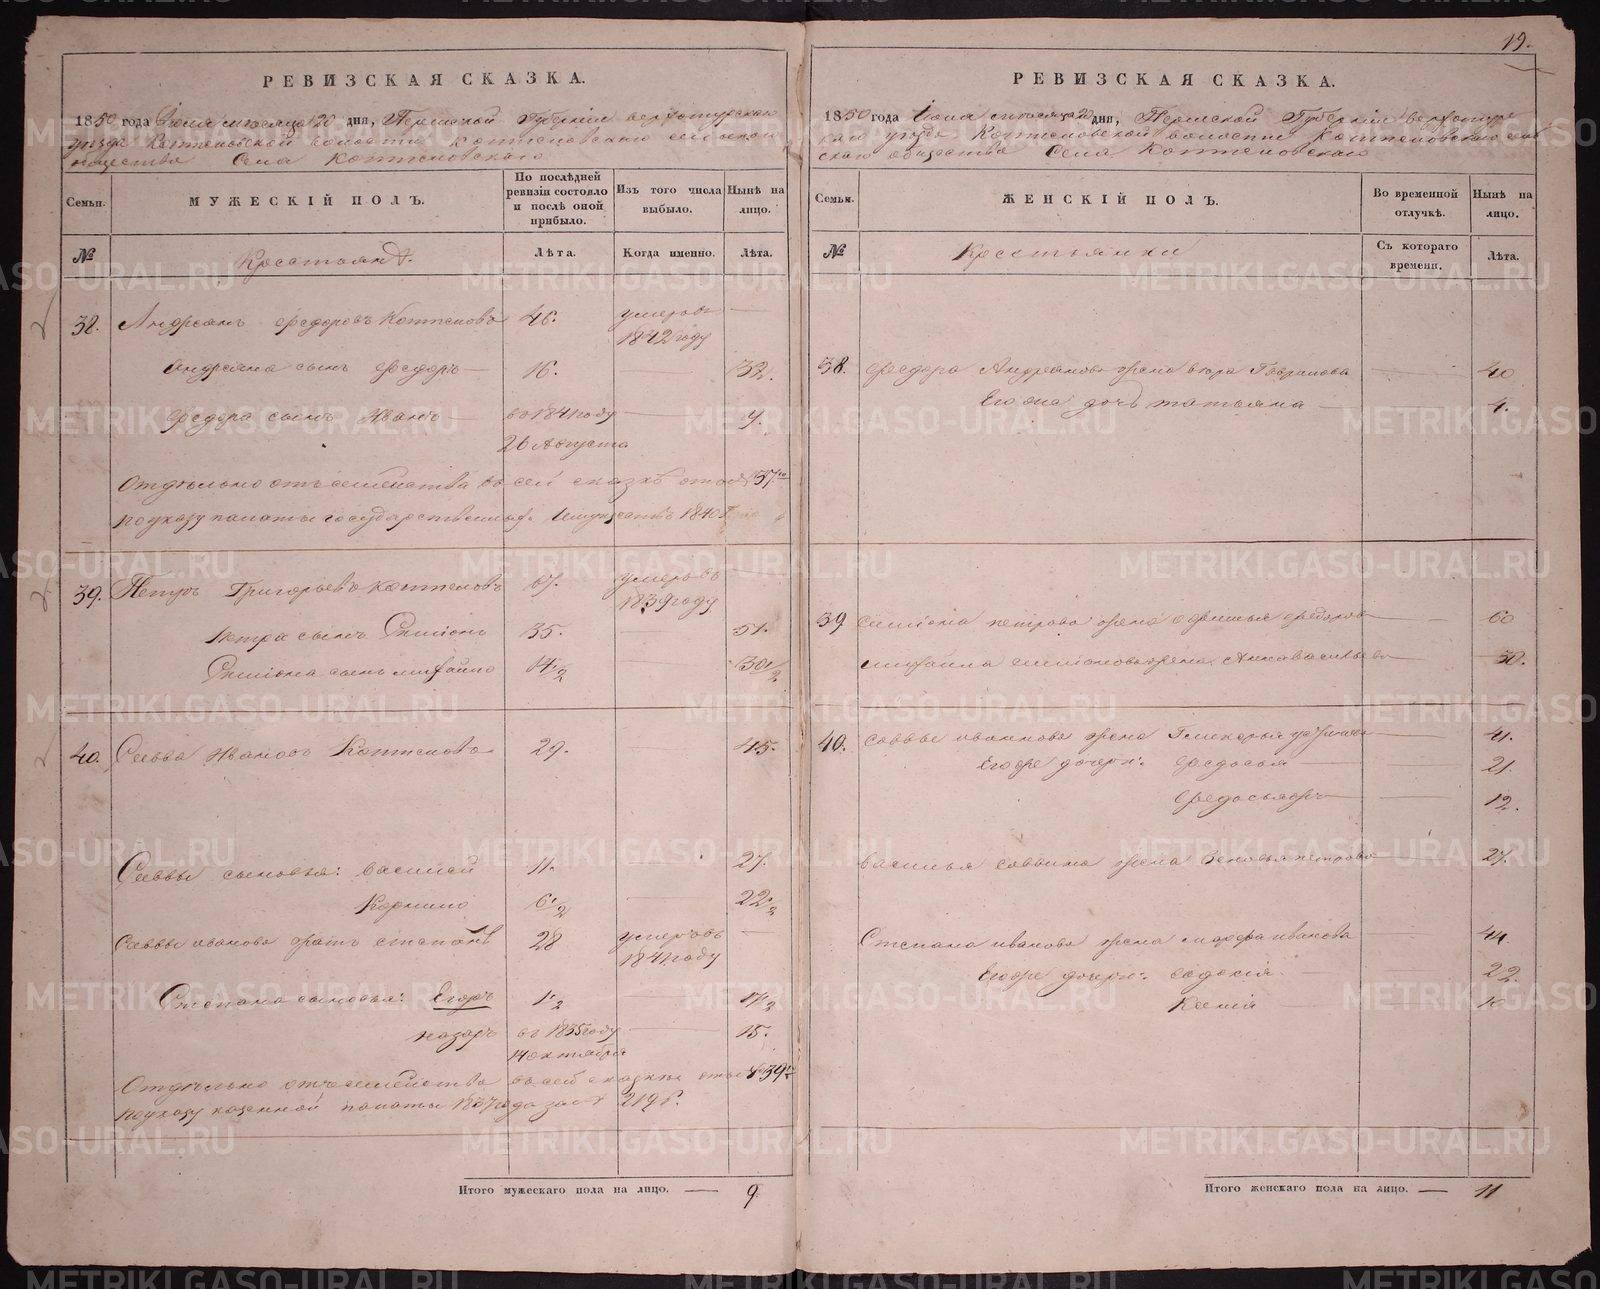 РЕВИЗСКАЯ СКАЗКА.
1850 года Июня месяца 20 дня, Пермской Губернии Верхотурскаго
уезда Коптеловской волости Коптеловскаго сельскаго
общества Села Коптеловскаго
Семьи.
МУЖЕСКІЙ ПОЛЪ.
По послѣдней ревизіи состояло и послѣ оной прибыло.
Изъ того числа выбыло.
Нынѣ на лицо.
№
Крестьянъ.
Лѣта.
Когда именно.
Лѣта.
38. Андреанъ Федоровъ Коптеловъ 46. умеръ въ
1842 году
Андреана сынъ Федоръ 16. 32.
Федора сынъ Иванъ въ 1841 году 9.
26 Августа
Отдѣльно отъ семейства въ сей сказкѣ отъ 37го
по указу палаты государственныхъ Имуществъ 1840
39. Петръ Григорьевъ Коптеловъ 67. умеръ въ
1839 году
Петра сынъ Симіонъ 35. 51.
Симіона сынъ Михайло 14 1/2 30 1/2
40. Савва Ивановъ Коптеловъ 29. 45.
Саввы сыновья: Василей 11. 27.
Корнило 6 1/2 22 1/2
Саввы Иванова братъ Степанъ 28 умеръ въ
1841 году
Степана сыновья: Егоръ 1 1/2 17 1/2
Назаръ въ 1835 году 15.
14 октября
Отдѣльно отъ семейства въ сей сказкѣ отъ № 39го
по указу казенной палаты 1837 года за № 219
Итого мужескаго пола на лицо. — 9.
19.
РЕВИЗСКАЯ СКАЗКА.
1850 года Іюня месяца 20 дни, Пермской Губерніи Верхотурс
каго уезда Коптеловской волости Коптеловскаго сель
скаго общества Села Коптеловскаго
Семьи.
ЖЕНСКІЙ ПОЛЪ.
Во временной отлучкѣ.
Нынѣ на лицо.
№
Крестьянки
Съ котораго времени.
Лѣта.
38. Федора Андреанова жена Гаврилова 40
Его дочь Татьяна 4.
39 Симіона Петрова жена Федорова 60
Михайла Симіонова жена Анна Васильева 30.
40. Саввы Иванова жена 41.
Его дочери: Федосья 21.
Федосья 12.
Василья Саввина жена Зеновья Петрова 27.
Степана Иванова жена Марфа Иванова 44.
Его дочери: Евдокія 22.
Ксенія
Итого женскаго пола на лицо. — 11
METRIKI.GASO-URAL.RU